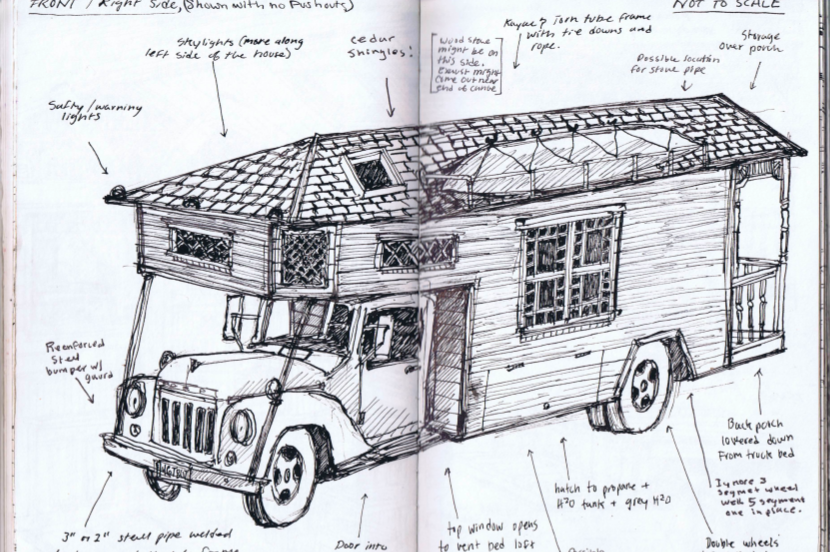 FRONT / Right Side, (Shown with no Pushouts)
NOT TO SCALE
Skylights (more along
left side of the house)
cedar
Shingles!
[wood stove
might be on
this side.
Exaust might
come out near
end of canoe]
Kayak? Torn tube frame
with tie downs and
rope.
Possible location
for stove pipe
Storage
over porch
Safty/warning
lights
Reenforced
Steel
bumper w/
gaurd
Back porch
lowered down
From truck bed
Ignore 3
segmet wheel
well 5 segment
one in place.
hatch to propane +
H2O tank + grey H2O
top window opens
to vent bed loft
3" or 2" steel pipe welded
Door into
Double wheels